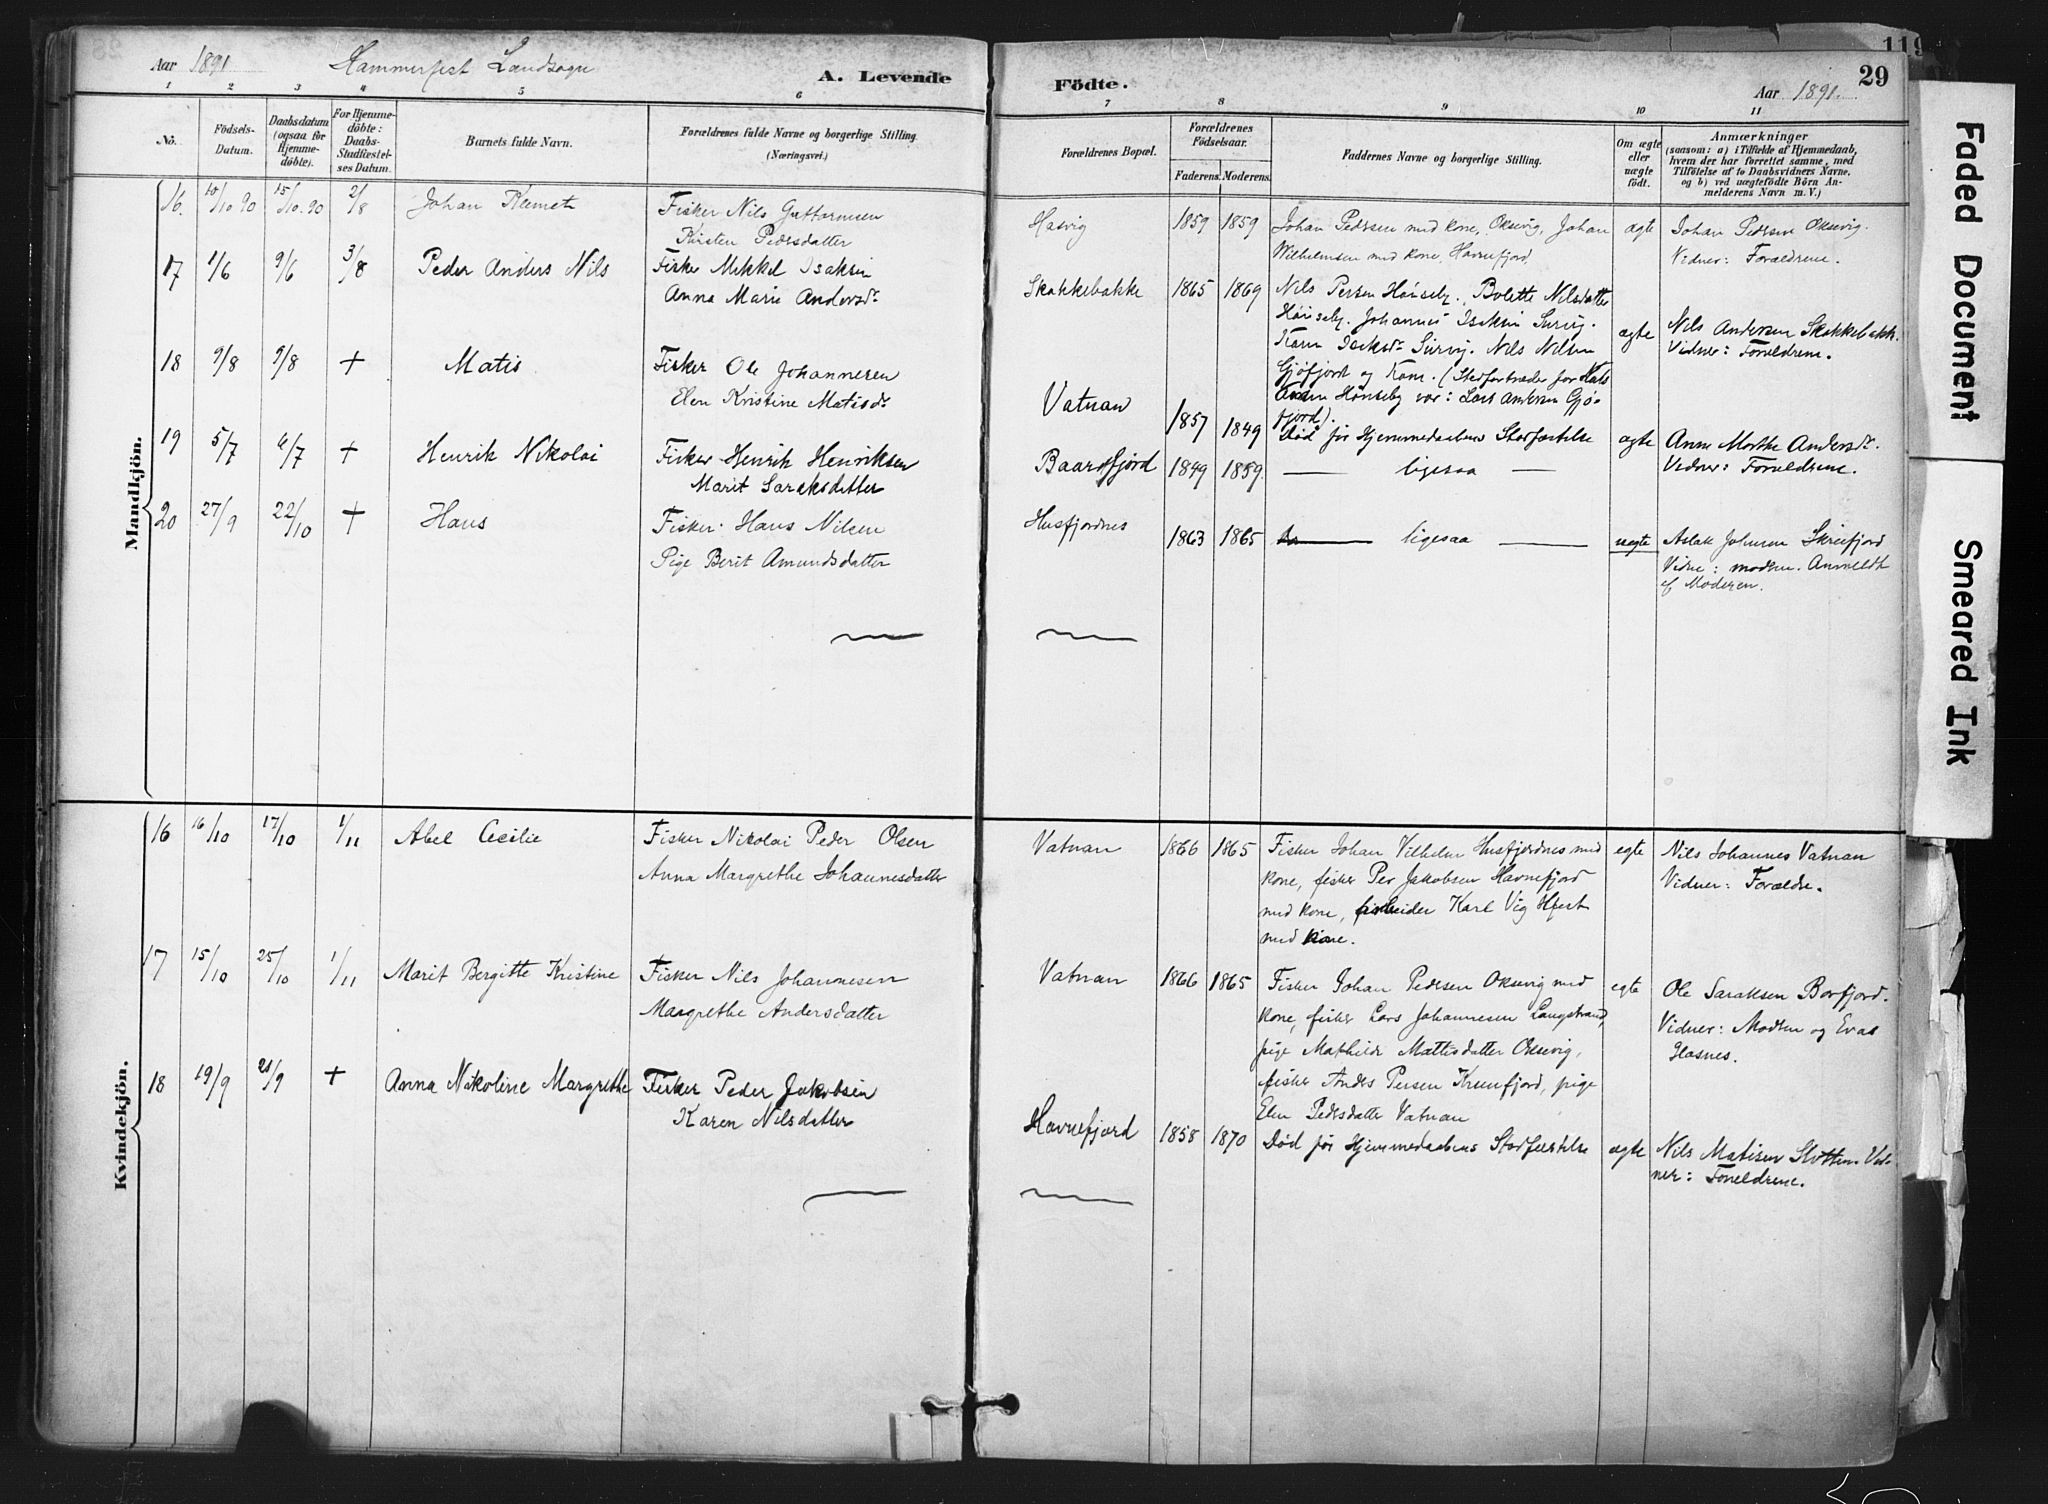 Aar 1891 Hammerfest Landsogn A. Levende Födte. Aar 1891. 29
119
1 2 3 4 5 6 7 8 9 10 11
No.
Födsels-
Datum.
Daabsdatum
(ogsaa for
Hjemme-
döbte).
For Hjemme-
döbte:
Daabs-
Stadfæstel-
ses Datum.
Barnets fulde Navn.
Forældrenes fulde Navne og borgerlige Stilling.
(Næringsvei.)
Forældrenes Bopæl.
Forældrenes
Födselsaar.
Faderens. Moderens.
Faddernes Navne og borgerlige Stilling.
Om ægte
eller
uægte
födt.
Anmærkninger
(saasom: a) i Tilfælde af Hjemmedaab,
hvem der har forrettet samme, med
Tilföielse af to Daabsvidners Navne,
og b) ved uægtefödte Börn An-
melderens Navn m. V.)
Mandkjön.
16. 10/10 90 15/10.90 2/8 Johan Klemet
Fisker Nils Guttormsen
Kirsten Pedersdatter
Hasvig 1859 1859
Johan Pedersen med kone, Oksvig, Johan
Wilhelmsen med kone, Havnefjord.
ægte
Johan Pedersen Oksevig.
Vidner: Forældrene.
17 1/6 9/6 3/8 Peder Anders Nils
Fisker Mikkel Isaksen
Anna Marie Andersdr
Skakkebakke 1865 1869
Nils Persen Hönseby. Bolette Nilsdatter
Hönseby. Johannes Isaksen Survig.
Karen Isaksdr Survig. Nils Nilsen
Gjöfjord og Kone. (Stedfortræder for Mats
Hönseby var: Lars Andersen Gjö-
fjord).
ægte
Nils Andersen Skakkebakk.
Vidner: Foreldrene.
18 9/8 9/8 + Matis
Fisker Ole Johannesen
Elen Kristine Matisdr
Vatnan 1857 1849
Död för Hjemmedaabens Stadfæstelse
ægte
Anne Marthe Andersdr.
Vidner: Foreldrene.
19 5/7 6/7 + Henrik Nikolai
Fisker Henrik Henriksen
Marit Saraksdatter
Baardfjord 1849 1859.
— ligesaa —
20 27/9 22/10 + Hans
Fisker: Hans Nilsen
Pige Berit Amundsdatter
Husfjordnes 1863 1865
— ligesaa —
uægte
Aslak Johnsen Skreifjord
Vidne: moderen. Anmeldt
af Moderen.
Kvindekjön.
16 16/10 17/10 1/11 Abel Cecilie
Fisker Nikolai Peder Olsen
Anna Margrethe Johannesdatter
Vatnan 1866 1865
Fisker Johan Vilhelm Husfjordnes med
kone, fisker Per Jakobsen Havnefjord
med kone, arbeider Karl Vig Hfest
med kone.
egte
Nils Johannes Vatnan
Vidner: Forældre.
17 15/10 25/10 1/11 Marit Bergitte Kristine
Fisker Nils Johannesen
Margrethe Andersdatter
Vatnan 1866 1865
Fisker Johan Pedersen Oksevig med
kone, fisker Lars Johannesen Langstrand,
pige Mathilde Mattisdatter Oksevig,
fisker Andes Persen Krumfjord, pige
Elen Pedersdatter Vatnan
egte
Ole Saraksen Borfjord.
Vidner: Modern og Evas
Hasnes.
18 19/9 21/9 + Anna Nikoline Margrethe
Fisker Peder Jakobsen
Karen Nilsdatter
Havnefjord 1858 1870
Död för Hjemmedaabens Stadfæstelse
ægte
Nils Matisen Slotten. Vid-
ner: Foreldrene.
Faded Document
Smeared Ink